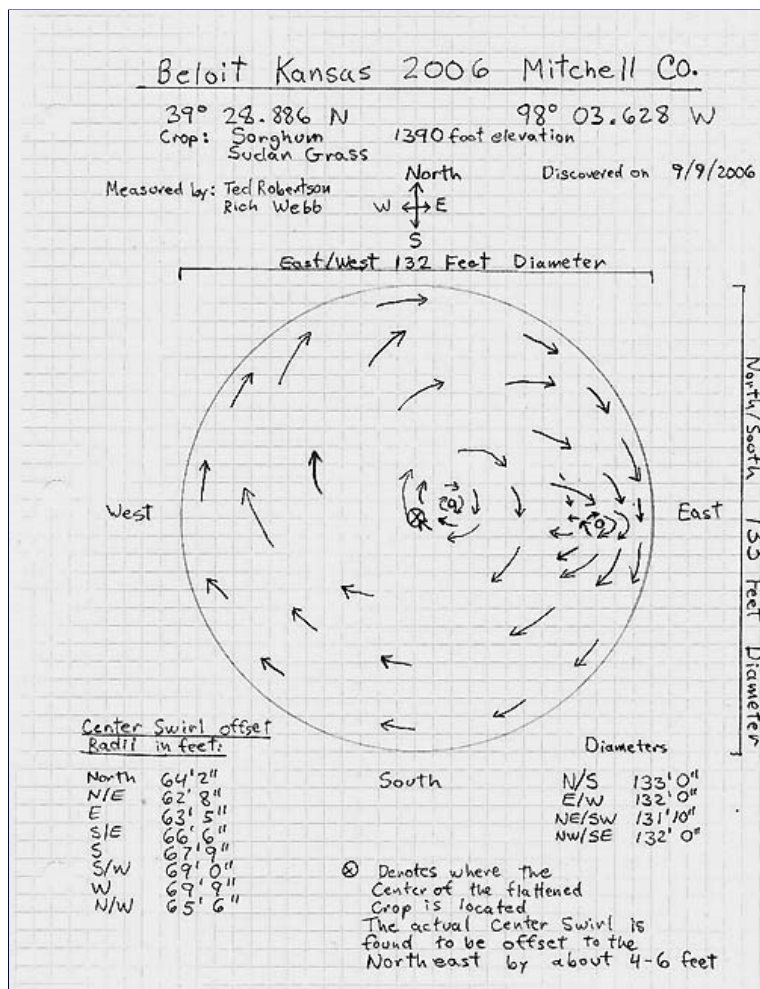 Beloit Kansas 2006 Mitchell CO.
39° 28.886 N 98° 03.628 W
Crop: Sorghum 1390 foot elevation
Sudan Grass
North Discovered on 9/9/2006
Measured by: Ted Robertson
Rich Webb
W E
S
East/West 132 Feet Diameter
North/South 133 Feet Diameter
West
East
Center Swirl offset
Radii in feet:
North 64'2"
N/E 62'8"
E 63'5"
S/E 66'6"
S 67'9"
S/W 69'0"
W 69'9"
N/W 65'6"
South
Diameters
N/S 133'0"
E/W 132'0"
NE/SW 131'10"
NW/SE 132'0"
⊗ Denotes where the
Center of the flattened
Crop is located
The actual Center Swirl is
found to be offset to the
Northeast by about 4-6 feet